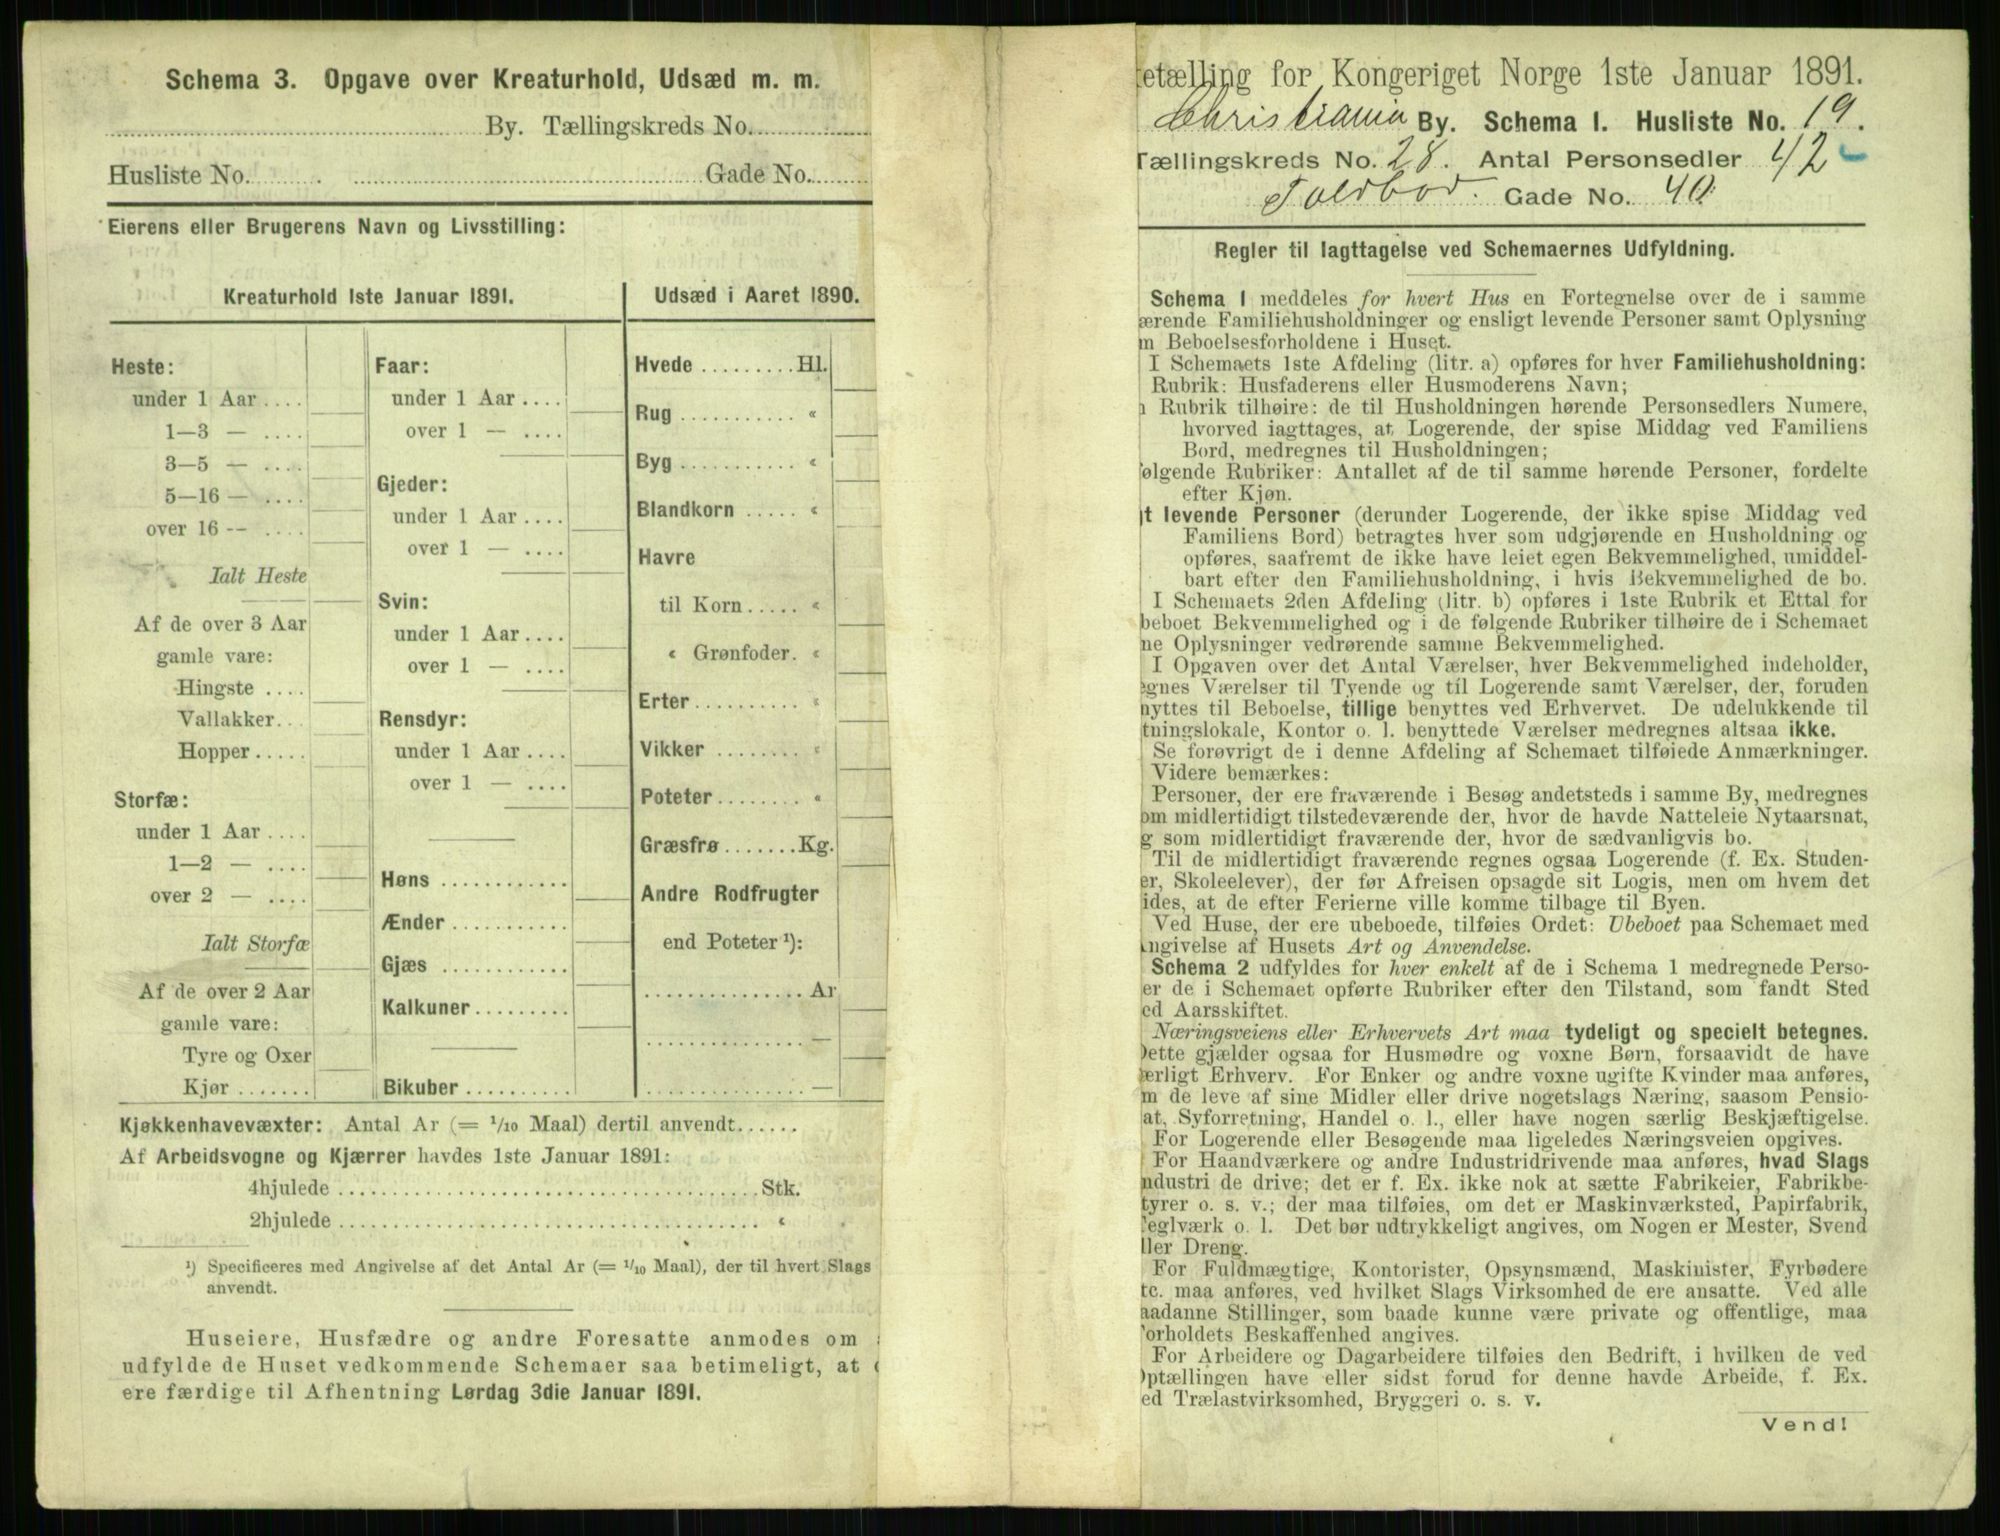 Schema 3. Opgave over Kreaturhold, Udsæd m. m.
By. Tællingskreds No.
Husliste No. Gade No.
Eierens eller Brugerens Navn og Livsstilling:
Kreaturhold 1ste Januar 1891.
Heste:
under 1 Aar
1—3 —
3—5 —
5—16 —
over 16 --
Ialt Heste
Af de over 3 Aar
gamle vare:
Hingste
Vallakker
Hopper
Storfæ:
under 1 Aar
1—2 —
over 2 —
Ialt Storfæ
Af de over 2 Aar
gamle vare:
Tyre og Oxer
Kjør
Faar:
under 1 Aar
over 1 —
Gjeder:
under 1 Aar
over 1 —
Svin:
under 1 Aar
over 1 —
Rensdyr:
under 1 Aar
over 1 —
Høns
Ænder
Gjæs
Kalkuner
Bikuber
Udsæd i Aaret 1890.
Hvede Hl.
Rug «
Byg «
Blandkorn «
Havre
til Korn «
« Grønfoder. «
Erter «
Vikker «
Poteter «
Græsfrø Kg.
Andre Rodfrugter
end Poteter ¹):
Ar
—
—
Kjøkkenhavevæxter: Antal Ar (= 1/10 Maal) dertil anvendt
Af Arbeidsvogne og Kjærrer havdes 1ste Januar 1891:
4hjulede Stk.
2hjulede «
¹) Specificeres med Angivelse af det Antal Ar (= 1/10 Maal), der til hvert Slags
anvendt.
Huseiere, Husfædre og andre Foresatte anmodes om
udfylde de Huset vedkommende Schemaer saa betimeligt, at
ere færdige til Afhentning Lørdag 3die Januar 1891.
etælling for Kongeriget Norge 1ste Januar 1891.
Christiania By. Schema I. Husliste No. 19.
Tællingskreds No. 28. Antal Personsedler 42
Toldbod. Gade No. 40.
Regler til Iagttagelse ved Schemaernes Udfyldning.
Schema 1 meddeles for hvert Hus en Fortegnelse over de i samme
ærende Familiehusholdninger og ensligt levende Personer samt Oplysning
n Beboelsesforholdene i Huset.
I Schemaets 1ste Afdeling (litr. a) opføres for hver Familiehusholdning:
Rubrik: Husfaderens eller Husmoderens Navn;
Rubrik tilhøire: de til Husholdningen hørende Personsedlers Numere,
hvorved iagttages, at Logerende, der spise Middag ved Familiens
Bord, medregnes til Husholdningen;
ølgende Rubriker: Antallet af de til samme hørende Personer, fordelte
efter Kjøn.
t levende Personer (derunder Logerende, der ikke spise Middag ved
Familiens Bord) betragtes hver som udgjørende en Husholdning og
opføres, saafremt de ikke have leiet egen Bekvemmelighed, umiddel-
bart efter den Familiehusholdning, i hvis Bekvemmelighed de bo.
I Schemaets 2den Afdeling (litr. b) opføres i 1ste Rubrik et Ettal for
beboet Bekvemmelighed og i de følgende Rubriker tilhøire de i Schemaet
ne Oplysninger vedrørende samme Bekvemmelighed.
I Opgaven over det Antal Værelser, hver Bekvemmelighed indeholder,
egnes Værelser til Tyende og til Logerende samt Værelser, der, foruden
nyttes til Beboelse, tillige benyttes ved Erhvervet. De udelukkende til
tningslokale, Kontor o. l. benyttede Værelser medregnes altsaa ikke.
Se forøvrigt de i denne Afdeling af Schemaet tilføiede Anmærkninger.
Videre bemærkes:
Personer, der ere fraværende i Besøg andetsteds i samme By, medregnes
om midlertidigt tilstedeværende der, hvor de havde Natteleie Nytaarsnat,
g som midlertidigt fraværende der, hvor de sædvanligvis bo.
Til de midlertidigt fraværende regnes ogsaa Logerende (f. Ex. Studen-
er, Skoleelever), der før Afreisen opsagde sit Logis, men om hvem det
ides, at de efter Ferierne ville komme tilbage til Byen.
Ved Huse, der ere ubeboede, tilføies Ordet: Ubeboet paa Schemaet med
ngivelse af Husets Art og Anvendelse.
Schema 2 udfyldes for hver enkelt af de i Schema 1 medregnede Perso-
er de i Schemaet opførte Rubriker efter den Tilstand, som fandt Sted
ed Aarsskiftet.
Næringsveiens eller Erhvervets Art maa tydeligt og specielt betegnes.
Dette gjælder ogsaa for Husmødre og voxne Børn, forsaavidt de have
ærligt Erhverv. For Enker og andre voxne ugifte Kvinder maa anføres,
m de leve af sine Midler eller drive nogetslags Næring, saasom Pensio-
at, Syforretning, Handel o. l., eller have nogen særlig Beskjæftigelse.
For Logerende eller Besøgende maa ligeledes Næringsveien opgives.
For Haandværkere og andre Industridrivende maa anføres, hvad Slags
ndustri de drive; det er f. Ex. ikke nok at sætte Fabrikeier, Fabrikbe-
tyrer o. s. v.; der maa tilføies, om det er Maskinværksted, Papirfabrik,
eglværk o. l. Det bør udtrykkeligt angives, om Nogen er Mester, Svend
ller Dreng.
For Fuldmægtige, Kontorister, Opsynsmænd, Maskinister, Fyrbødere
tc. maa anføres, ved hvilket Slags Virksomhed de ere ansatte. Ved alle
aadanne Stillinger, som baade kunne være private og offentlige, maa
orholdets Beskaffenhed angives.
For Arbeidere og Dagarbeidere tilføies den Bedrift, i hvilken de ved
Optællingen have eller sidst forud for denne havde Arbeide, f. Ex.
ed Trælastvirksomhed, Bryggeri o. s. v.
Vend!